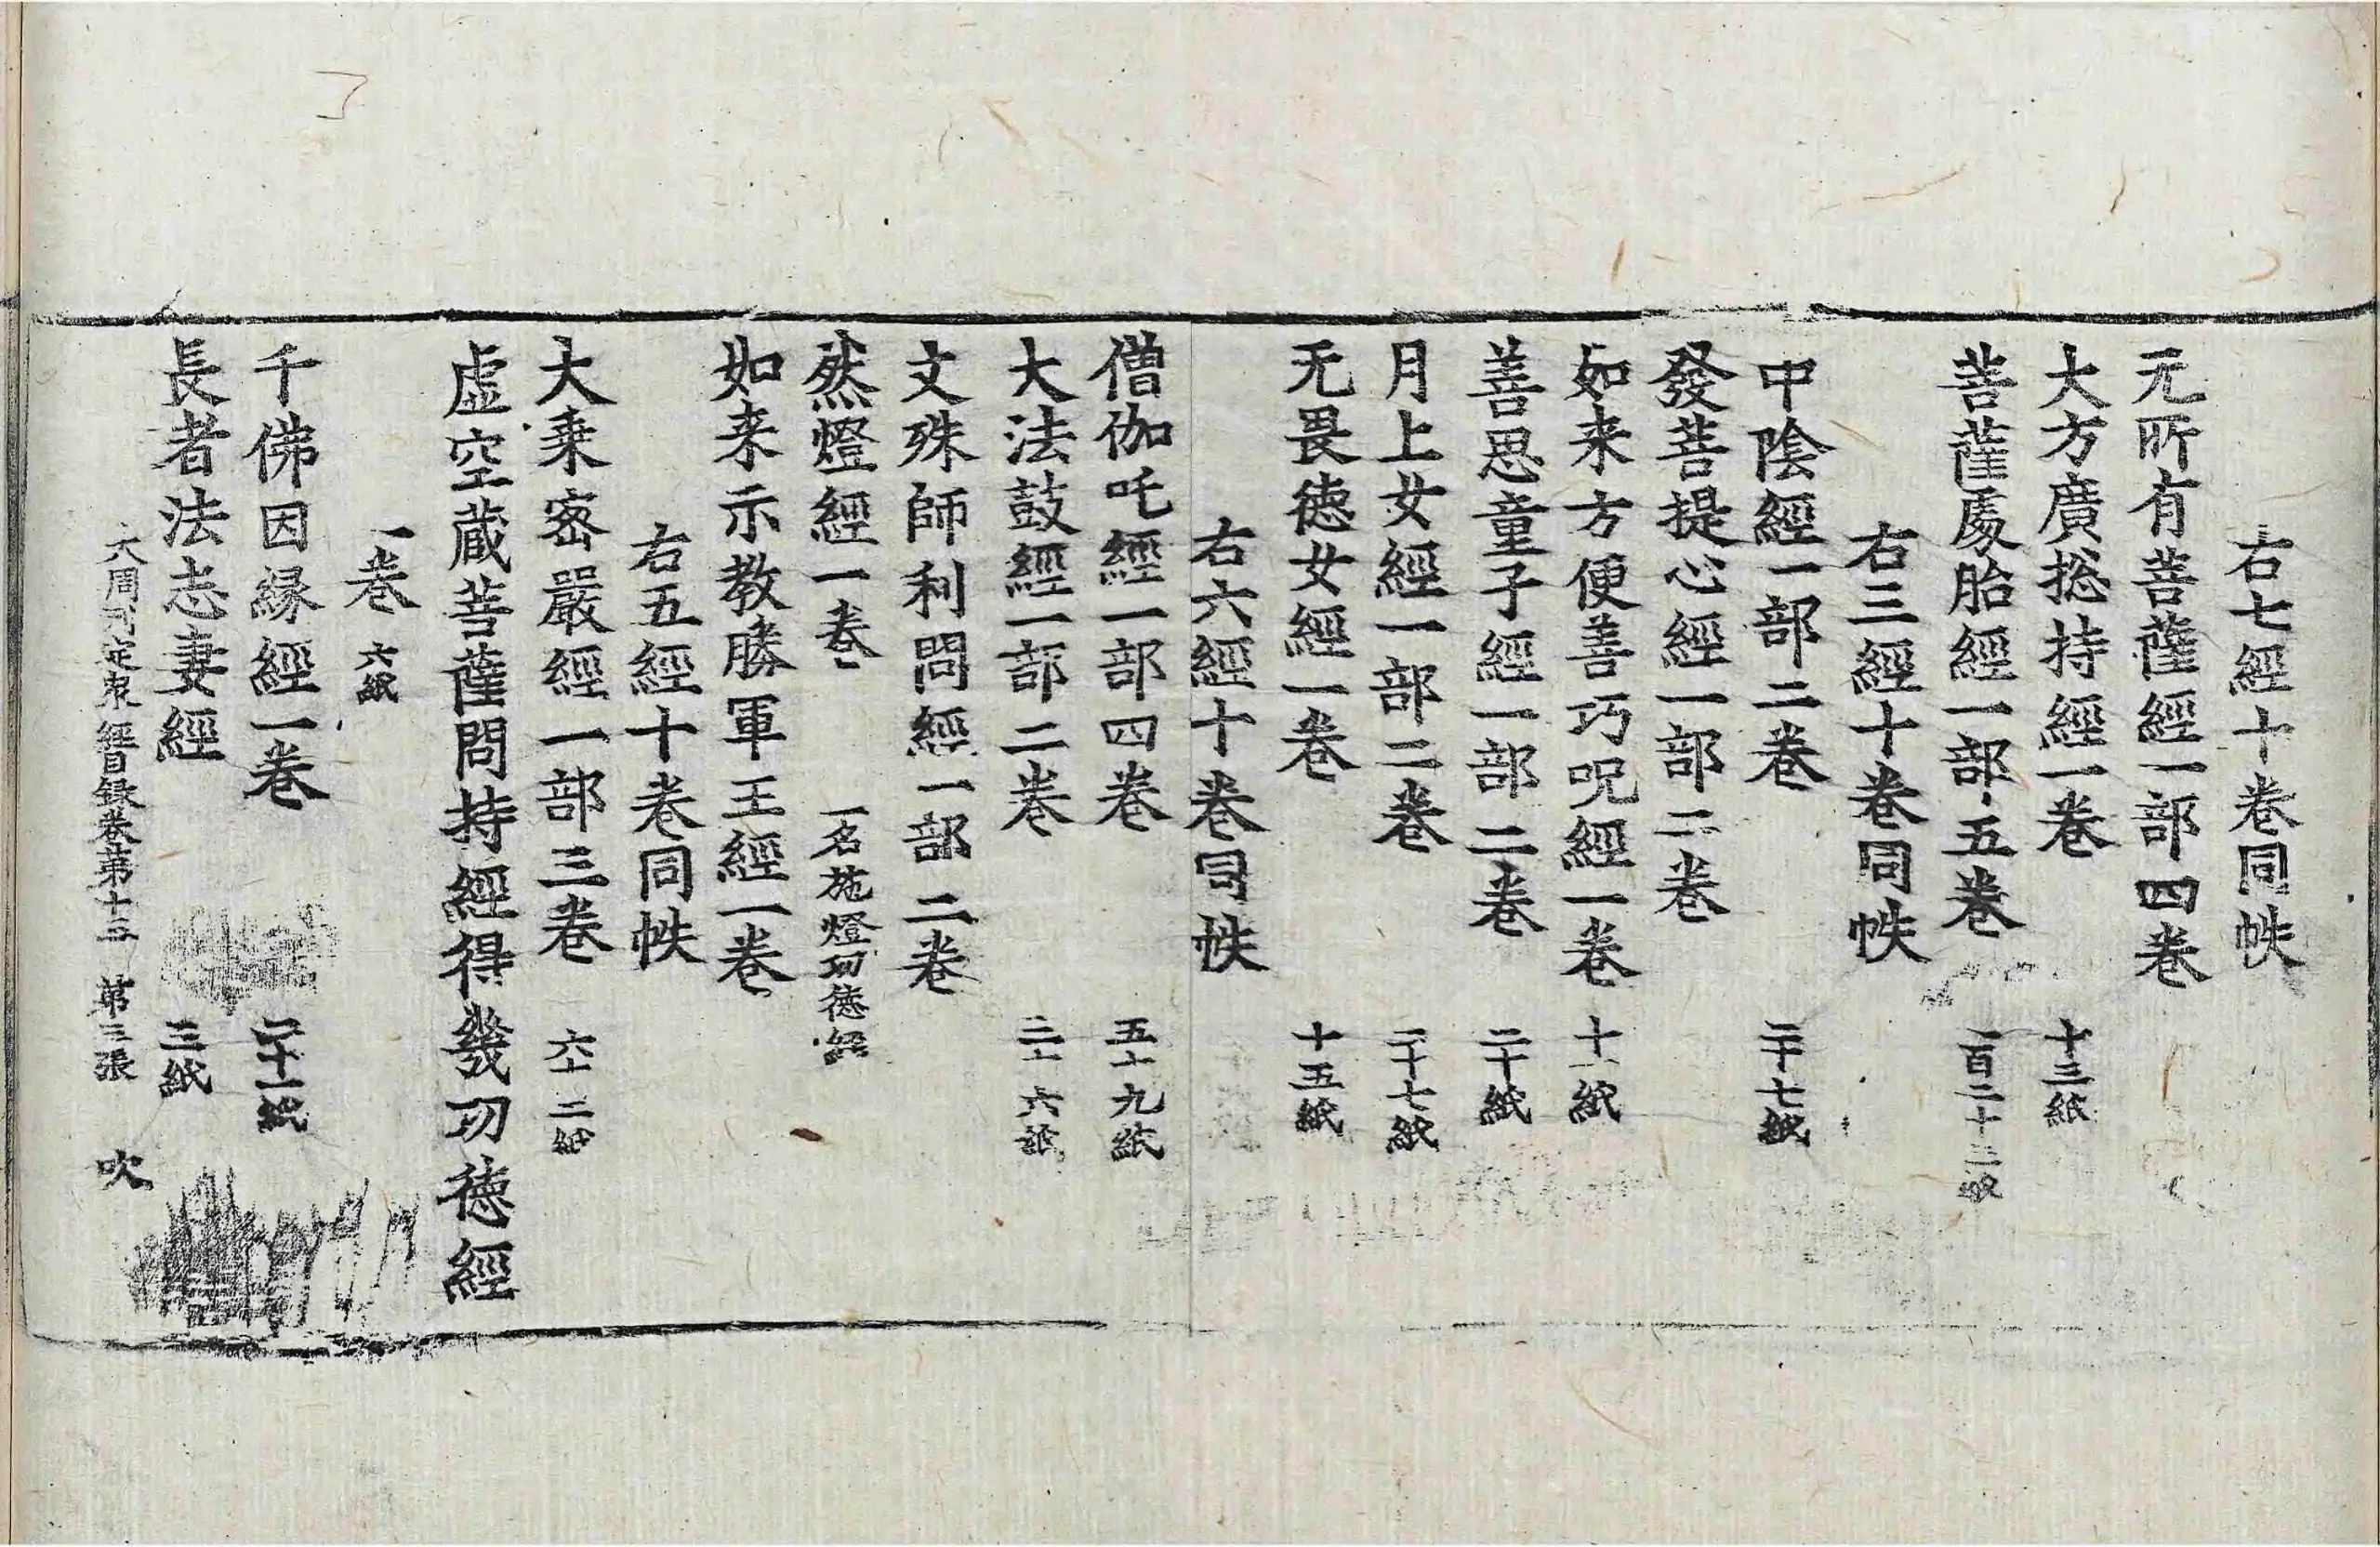 右七經十卷同帙
无所有菩薩經一部四卷
大方廣捴持經一卷 十三紙
菩薩處胎經一部五卷 一百二十三紙
右三經十卷同帙
中陰經一部二卷 二十七紙
發菩提心經一部二卷
如来方便善巧呪經一卷 十一紙
善思童子經一部二卷 二十紙
月上女經一部二卷 二十七紙
无畏德女經一卷 十五紙
右六經十卷同帙
僧伽吒經一部四卷 五十九紙
大法鼓經一部二卷 三十六紙
文殊師利問經一部二卷
然燈經一卷 一名施燈功德經
如来示教勝軍王經一卷
右五經十卷同帙
大乗密嚴經一部三卷 六十二紙
虚空蔵菩薩問持經得幾功徳經
一卷 六紙
千佛因緣經一卷 二十一紙
長者法志妻經 三紙
大周刊定衆經目録卷第十三 第三張 吹